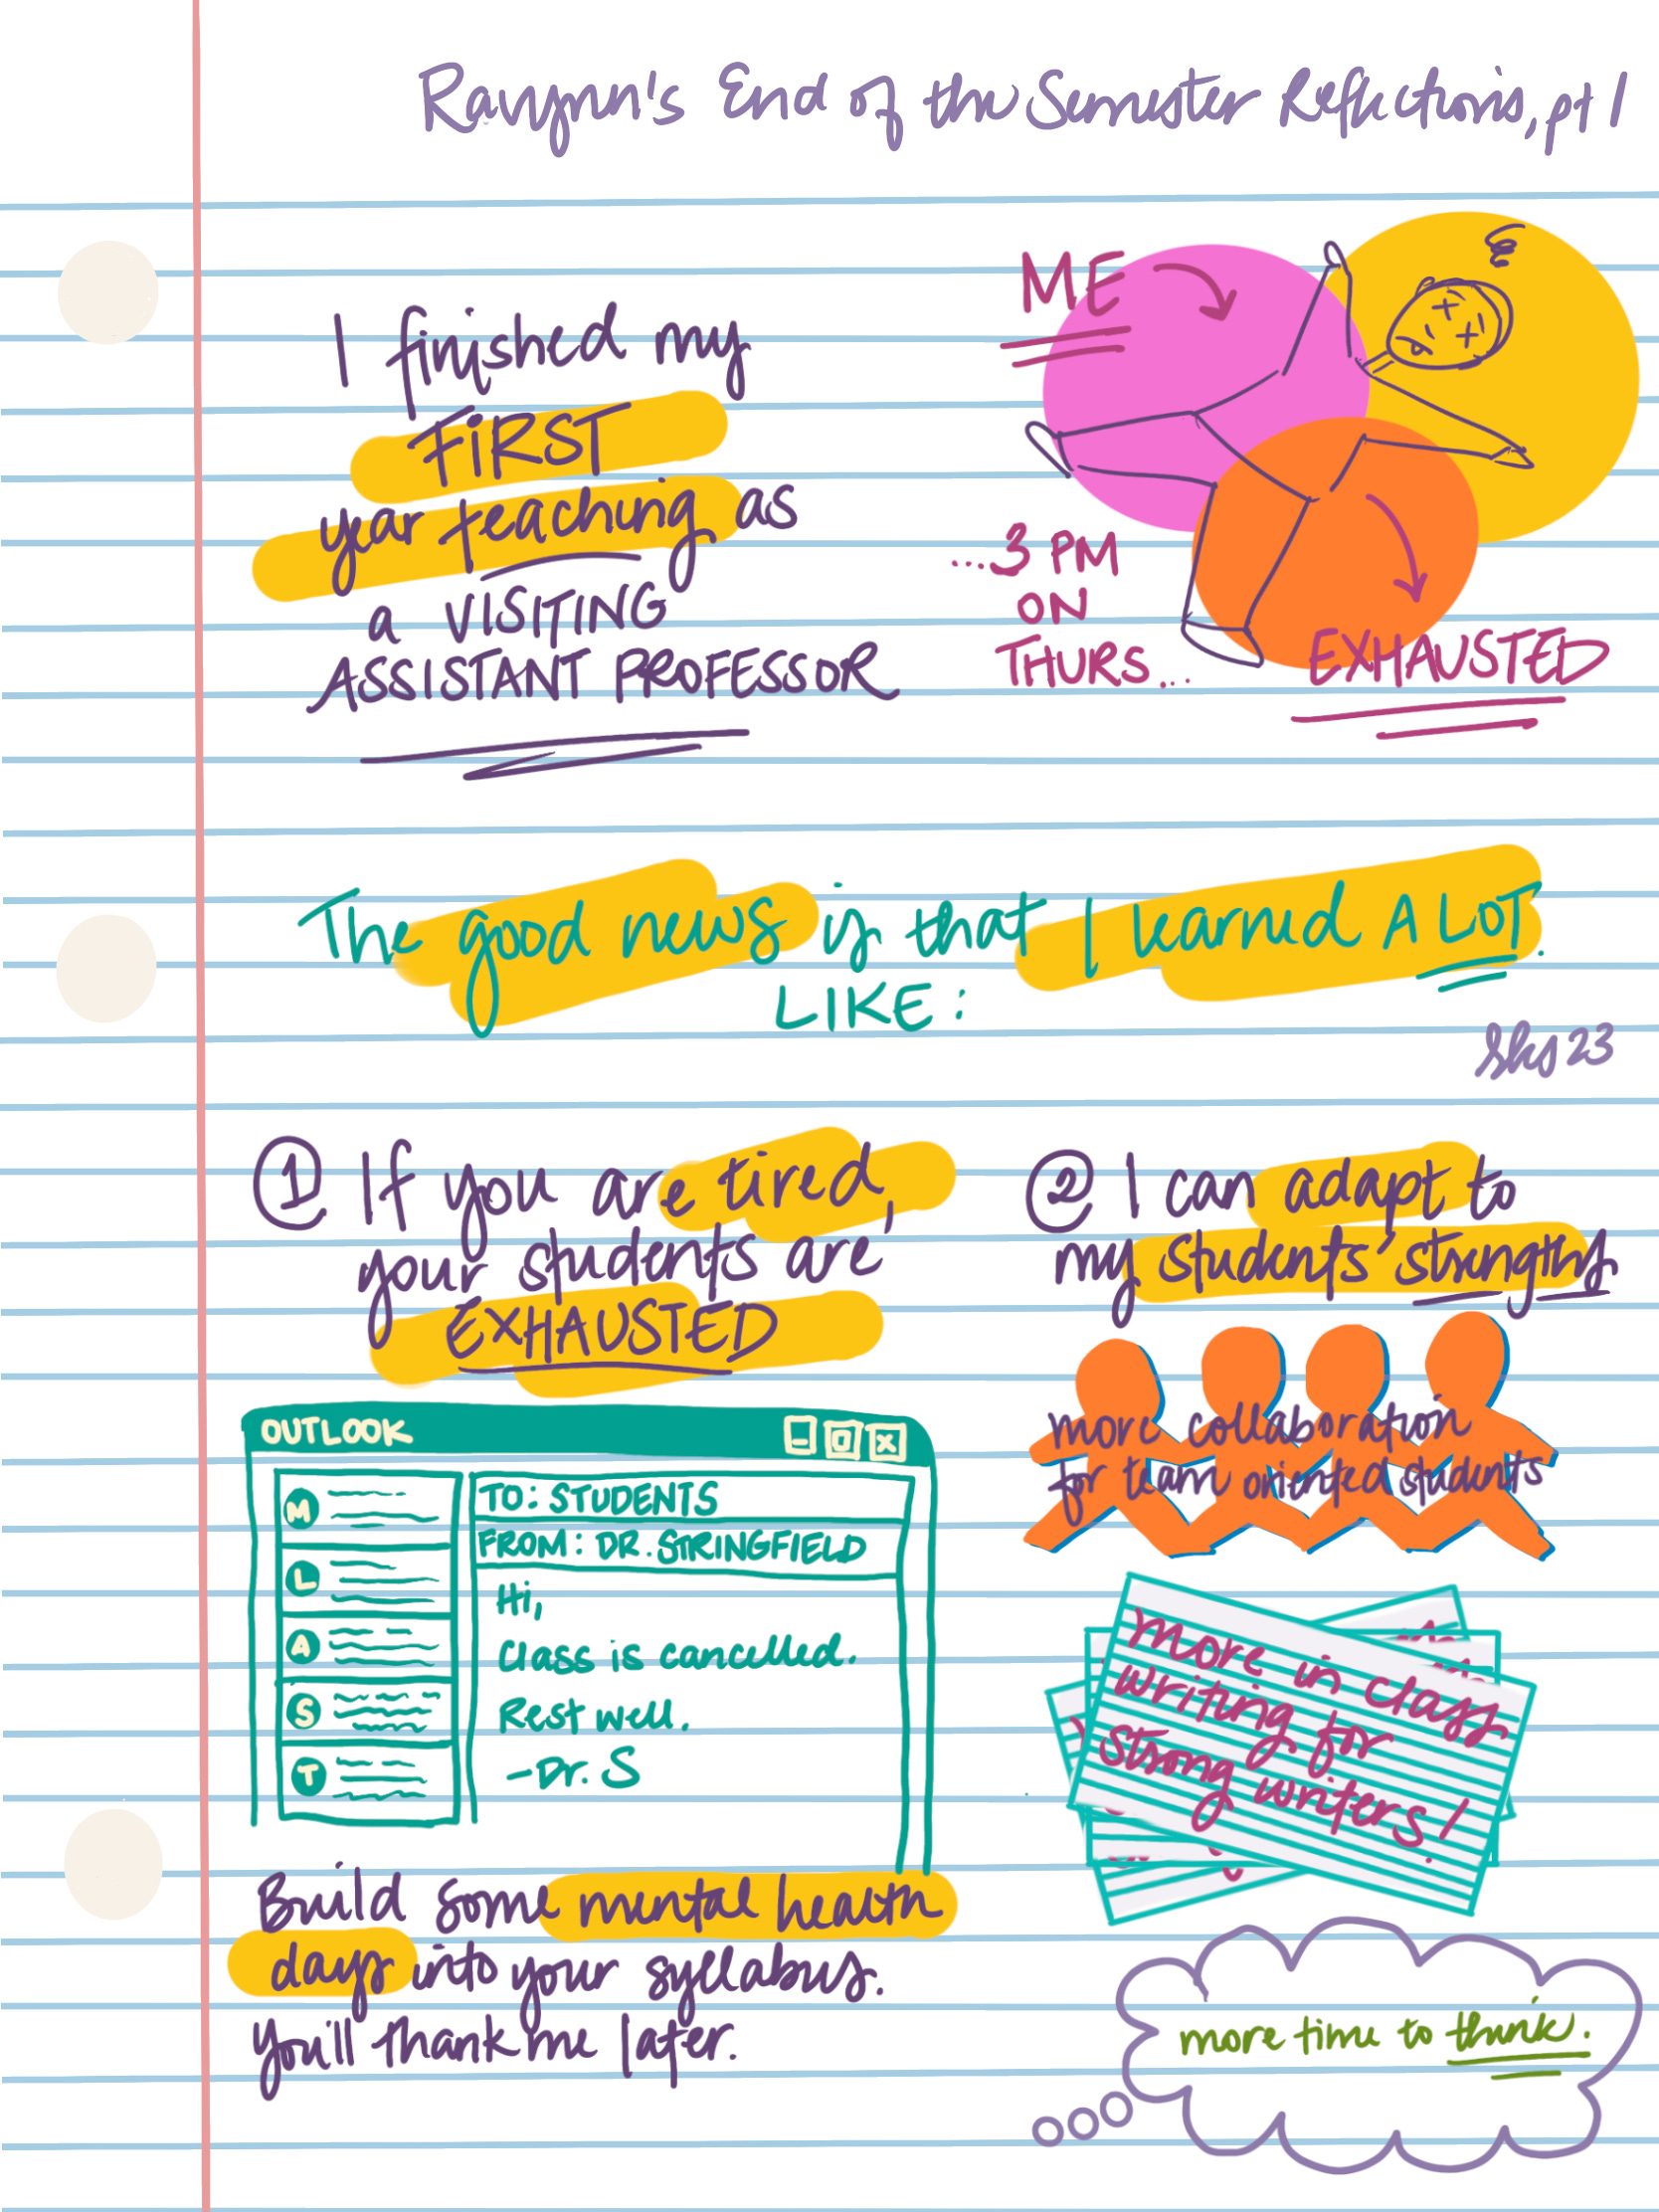 Ravynn's End of the Semester Reflections, pt 1
I finished my
FIRST
year teaching as
a VISITING
ASSISTANT PROFESSOR
ME
...3 PM
ON
THURS...
EXHAUSTED
The good news is that I learned A LOT.
LIKE:
sks 23
① If you are tired,
your students are
EXHAUSTED
OUTLOOK
M
L
A
S
T
TO: STUDENTS
FROM: DR. STRINGFIELD
Hi,
Class is cancelled.
Rest well.
-Dr. S
Build some mental health
days into your syllabus.
You'll thank me later.
② I can adapt to
my students' strengths
more collaboration
for team oriented students
more in class
writing for
strong writers!
more time to think.